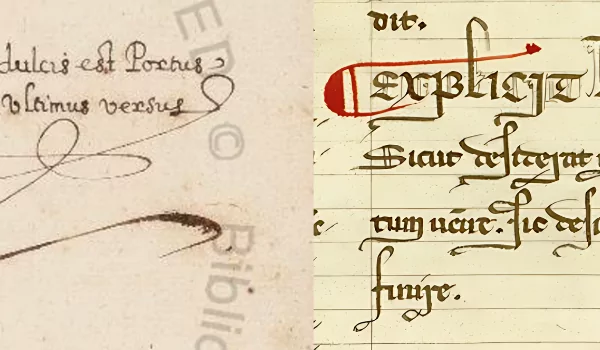 dulcis est Portus
ultimus versus
dit.
EXPLICIT
Sicut desiderat
tum uenire. sic desi
finire.
ED © Biblio